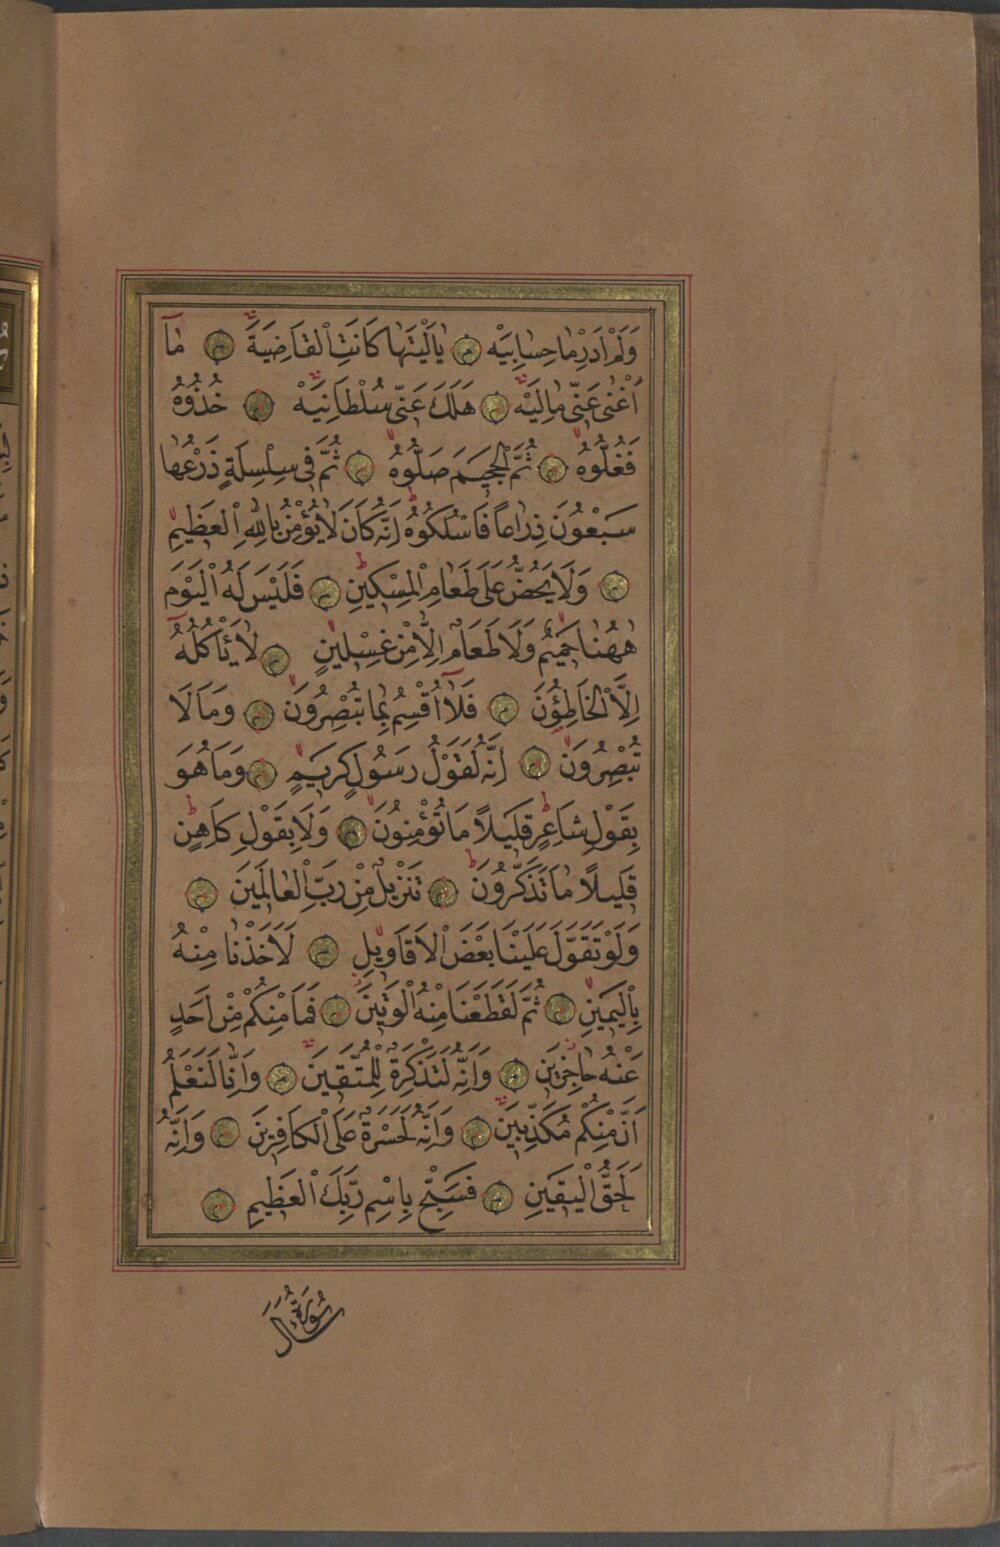 وَلَمْ اَدْرِ مَا حِسَابِيَهْ يَالَيْتَهَا كَانَتِ الْقَاضِيَةَ مَا
اَغْنٰى عَنّ۪ى مَالِيَهْ هَلَكَ عَنّ۪ى سُلْطَانِيَهْ خُذُوهُ
فَغُلُّوهُ ثُمَّ الْجَح۪يمَ صَلُّوهُ ثُمَّ ف۪ى سِلْسِلَةٍ ذَرْعُهَا
سَبْعُونَ ذِرَاعاً فَاسْلُكُوهُ اِنَّهُ كَانَ لَا يُؤْمِنُ بِاللّٰهِ الْعَظ۪يمِ
وَلَا يَحُضُّ عَلٰى طَعَامِ الْمِسْك۪ينِ فَلَيْسَ لَهُ الْيَوْمَ
هٰهُنَا حَم۪يمٌ وَلَا طَعَامٌ اِلَّا مِنْ غِسْل۪ينٍ لَا يَأْكُلُهُ
اِلَّا الْخَاطِؤُنَ فَلَا اُقْسِمُ بِمَا تُبْصِرُونَ وَمَا لَا
تُبْصِرُونَ اِنَّهُ لَقَوْلُ رَسُولٍ كَر۪يمٍ وَمَا هُوَ
بِقَوْلِ شَاعِرٍ قَل۪يلاً مَا تُؤْمِنُونَ وَلَا بِقَوْلِ كَاهِنٍ
قَل۪يلاً مَا تَذَكَّرُونَ تَنْز۪يلٌ مِنْ رَبِّ الْعَالَم۪ينَ
وَلَوْ تَقَوَّلَ عَلَيْنَا بَعْضَ الْاَقَاو۪يلِ لَاَخَذْنَا مِنْهُ
بِالْيَم۪ينِ ثُمَّ لَقَطَعْنَا مِنْهُ الْوَت۪ينَ فَمَا مِنْكُمْ مِنْ اَحَدٍ
عَنْهُ حَاجِز۪ينَ وَاِنَّهُ لَتَذْكِرَةٌ لِلْمُتَّق۪ينَ وَاِنَّا لَنَعْلَمُ
اَنَّ مِنْكُمْ مُكَذِّب۪ينَ وَاِنَّهُ لَحَسْرَةٌ عَلَى الْكَافِر۪ينَ وَاِنَّهُ
لَحَقُّ الْيَق۪ينِ فَسَبِّحْ بِاسْمِ رَبِّكَ الْعَظ۪يمِ
سُورَةُ سَاَلَ